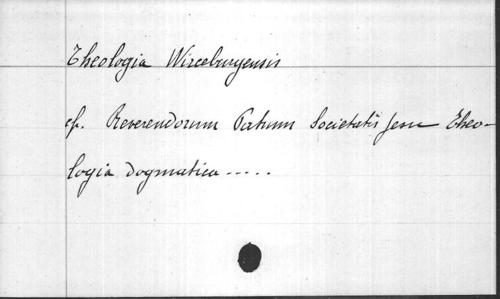 Theologia Wirceburgensis
cf. Reverendorum Patrum Societatis Jesu Theo-
logia dogmatica .....